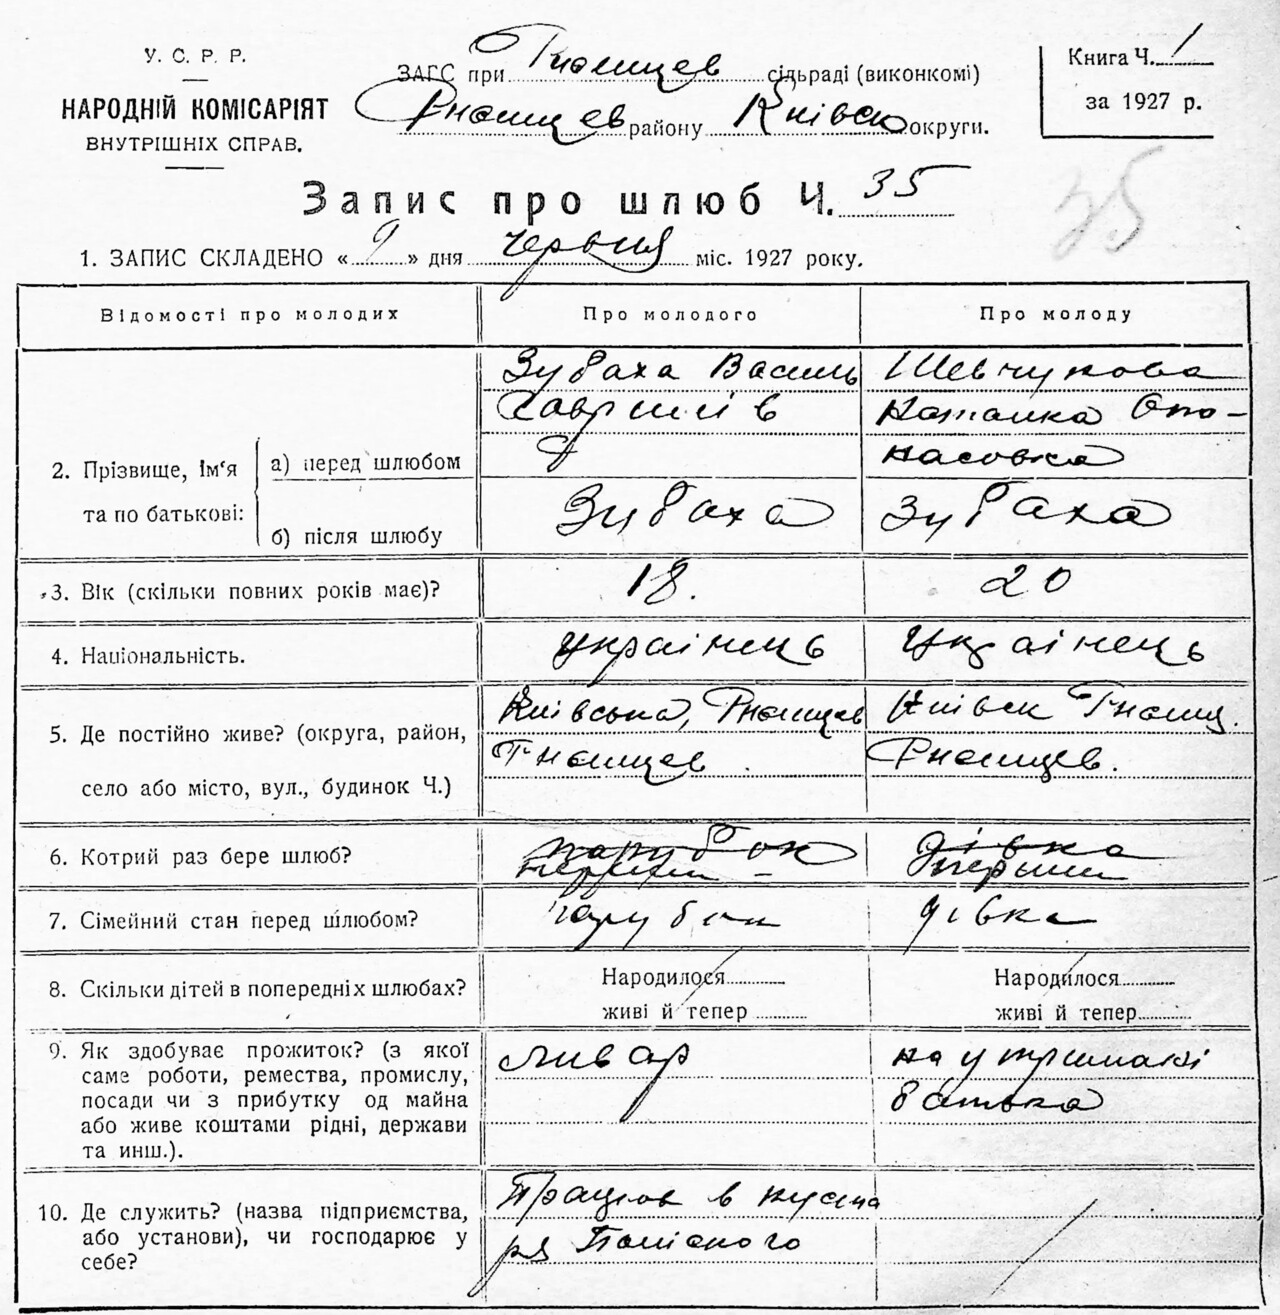 У. С. Р. Р.
НАРОДНІЙ КОМІСАРІЯТ
ВНУТРІШНІХ СПРАВ.
ЗАГС при Гнатищев сільраді (виконкомі)
району Київськ округи.
Книга Ч. 1
за 1927 р.
Запис про шлюб Ч. 35
35
1. ЗАПИС СКЛАДЕНО « 9 » дня червня міс. 1927 року.
Відомості про молодих
Про молодого
Про молоду
2. Прізвище, ім'я та по батькові:
а) перед шлюбом
Зубаха Василь
Гаврилів
Шевчукова
Наталка Опо-
насовна
б) після шлюбу
Зубаха
Зубаха
3. Вік (скільки повних років має)?
18.
20
4. Національність.
українець
українець
5. Де постійно живе? (округа, район,
село або місто, вул., будинок Ч.)
Київська,
Київськ
6. Котрий раз бере шлюб?
парубок
перший
дівка
перший
7. Сімейний стан перед шлюбом?
парубок
дівка
8. Скільки дітей в попередніх шлюбах?
Народилося
живі й тепер
Народилося
живі й тепер
9. Як здобуває прожиток? (з якої
саме роботи, ремества, промислу,
посади чи з прибутку од майна
або живе коштами рідні, держави
та инш.).
лимар
на утриманні
батька
10. Де служить? (назва підприємства,
або установи), чи господарює у
себе?
Працює в куста
ря